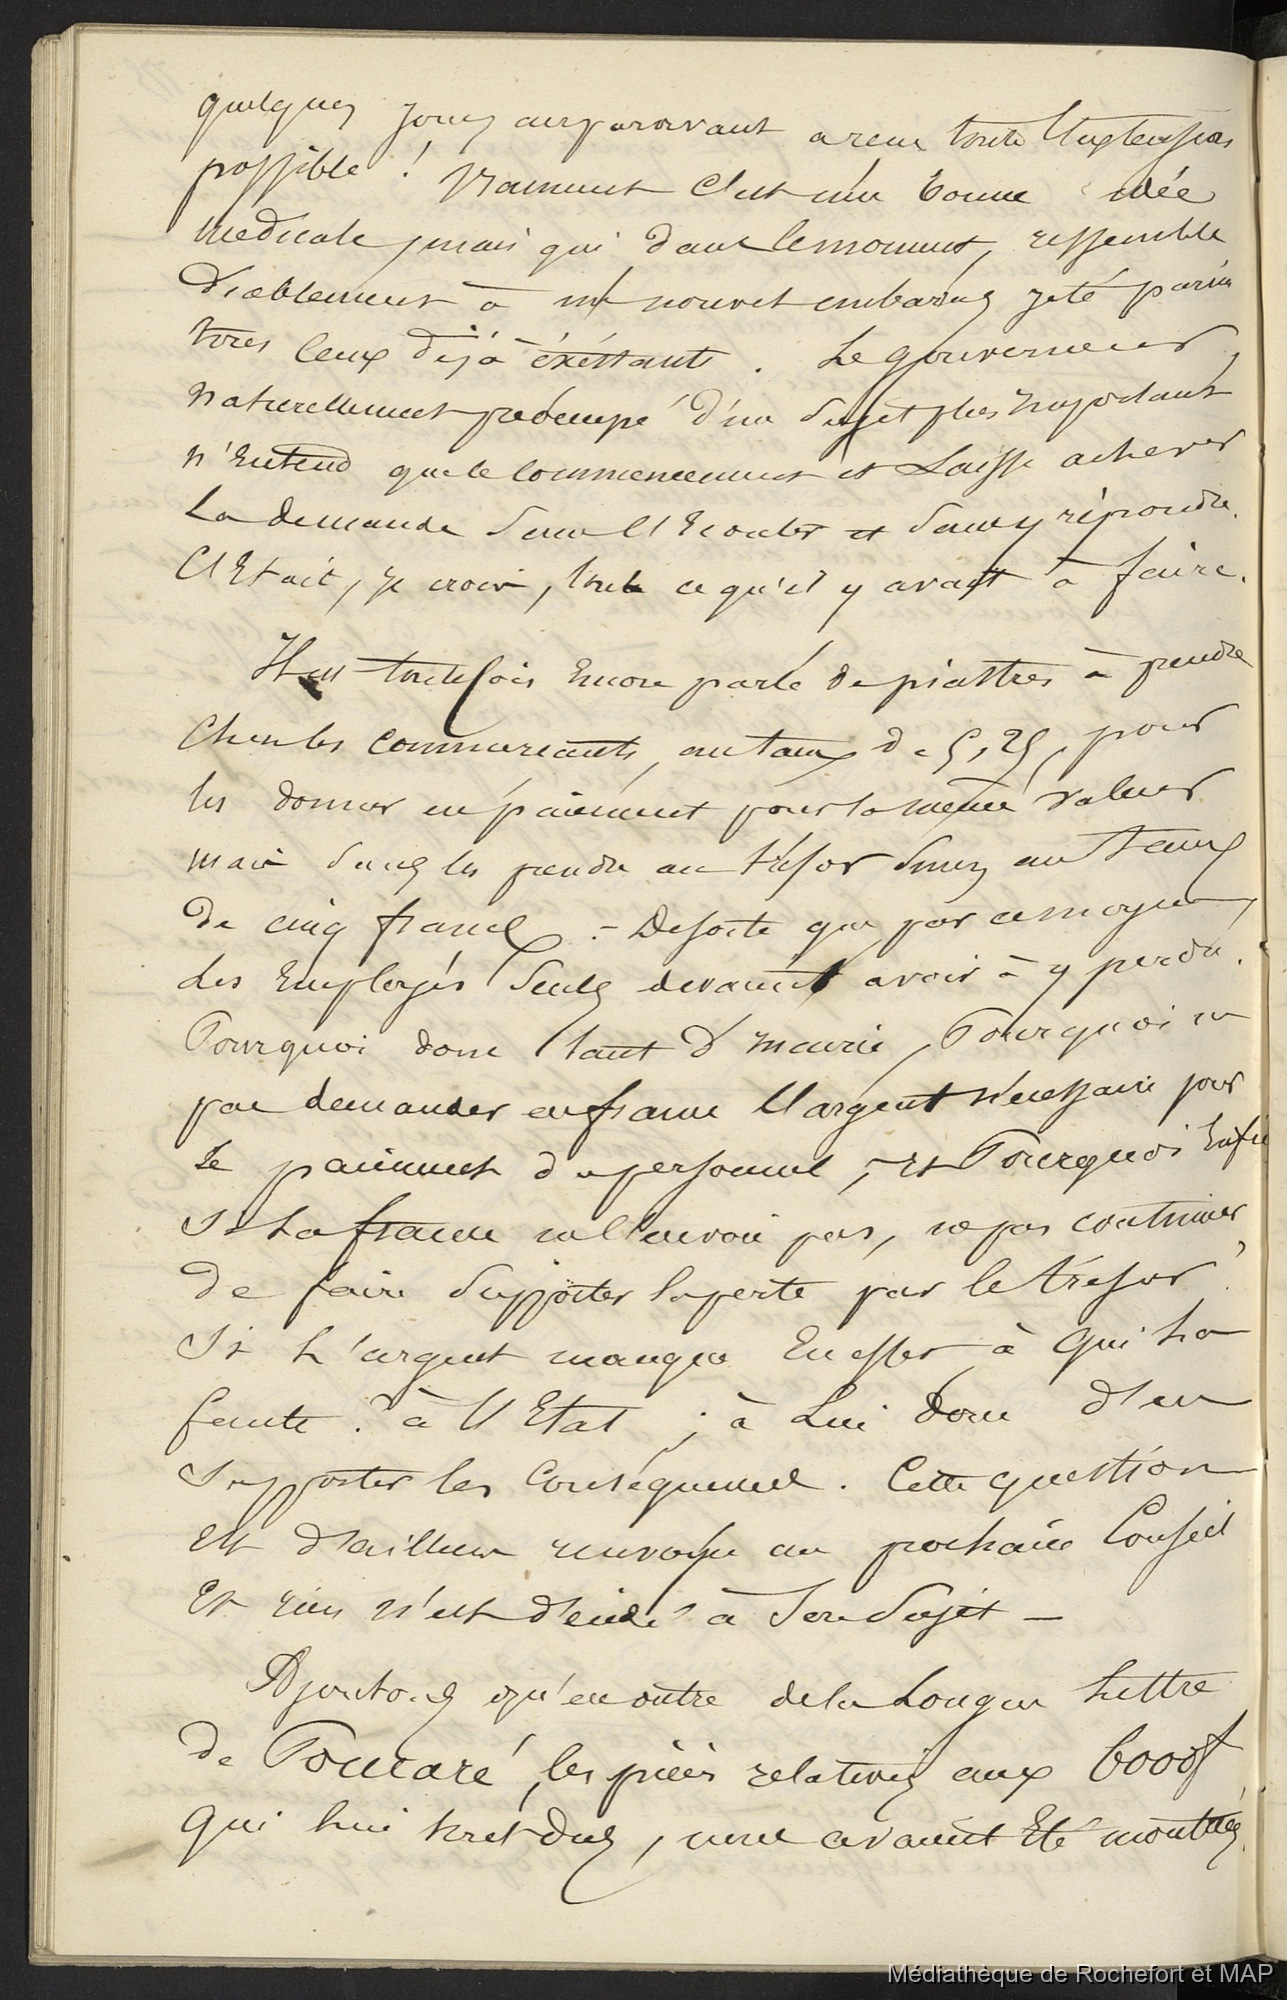 quelques jours auparavant a reçu toute l'extension
possible ! Vraiment c'est une bonne idée
médicale, mais qui dans le moment, ressemble
diablement à un nouvel embarras jeté parmi
tous ceux déjà éxistants. Le gouverneur,
naturellement préoccupé d'un sujet plus important
n'entend que le commencement et laisse achever
la demande sans l'écouter et sans y répondre.
C'était, je crois, tout ce qu'il y avait à faire.
Il est toutefois encore parlé de piastres à prendre
chez les commerçants, au taux de 5,25, pour
les donner en paiement pour la même valeur
mais sans les prendre au trésor sinon au taux
de cinq francs. - De sorte que par ce moyen,
les employés seuls devaient avoir à y perdre.
Pourquoi donc tant d' , Pourquoi ne
pas demander en france l'argent nécessaire pour
le paiement du personnel, et Pourquoi enfin
si la france ne l'envoie pas, ne pas continuer
de faire supporter la perte par le trésor ?
Si l'argent manque en effet à qui la
faute ? à l'Etat ; à lui donc d'en
supporter les conséquences. Cette question
est d'ailleurs renvoyée au prochain Conseil
et rien n'est décidé à son sujet —
Ajoutons qu'en outre de la longue lettre
de Poucaré, les pièces relatives aux 6000f
qui lui sont dus, nous avaient été montrées.
Médiathèque de Rochefort et MAP